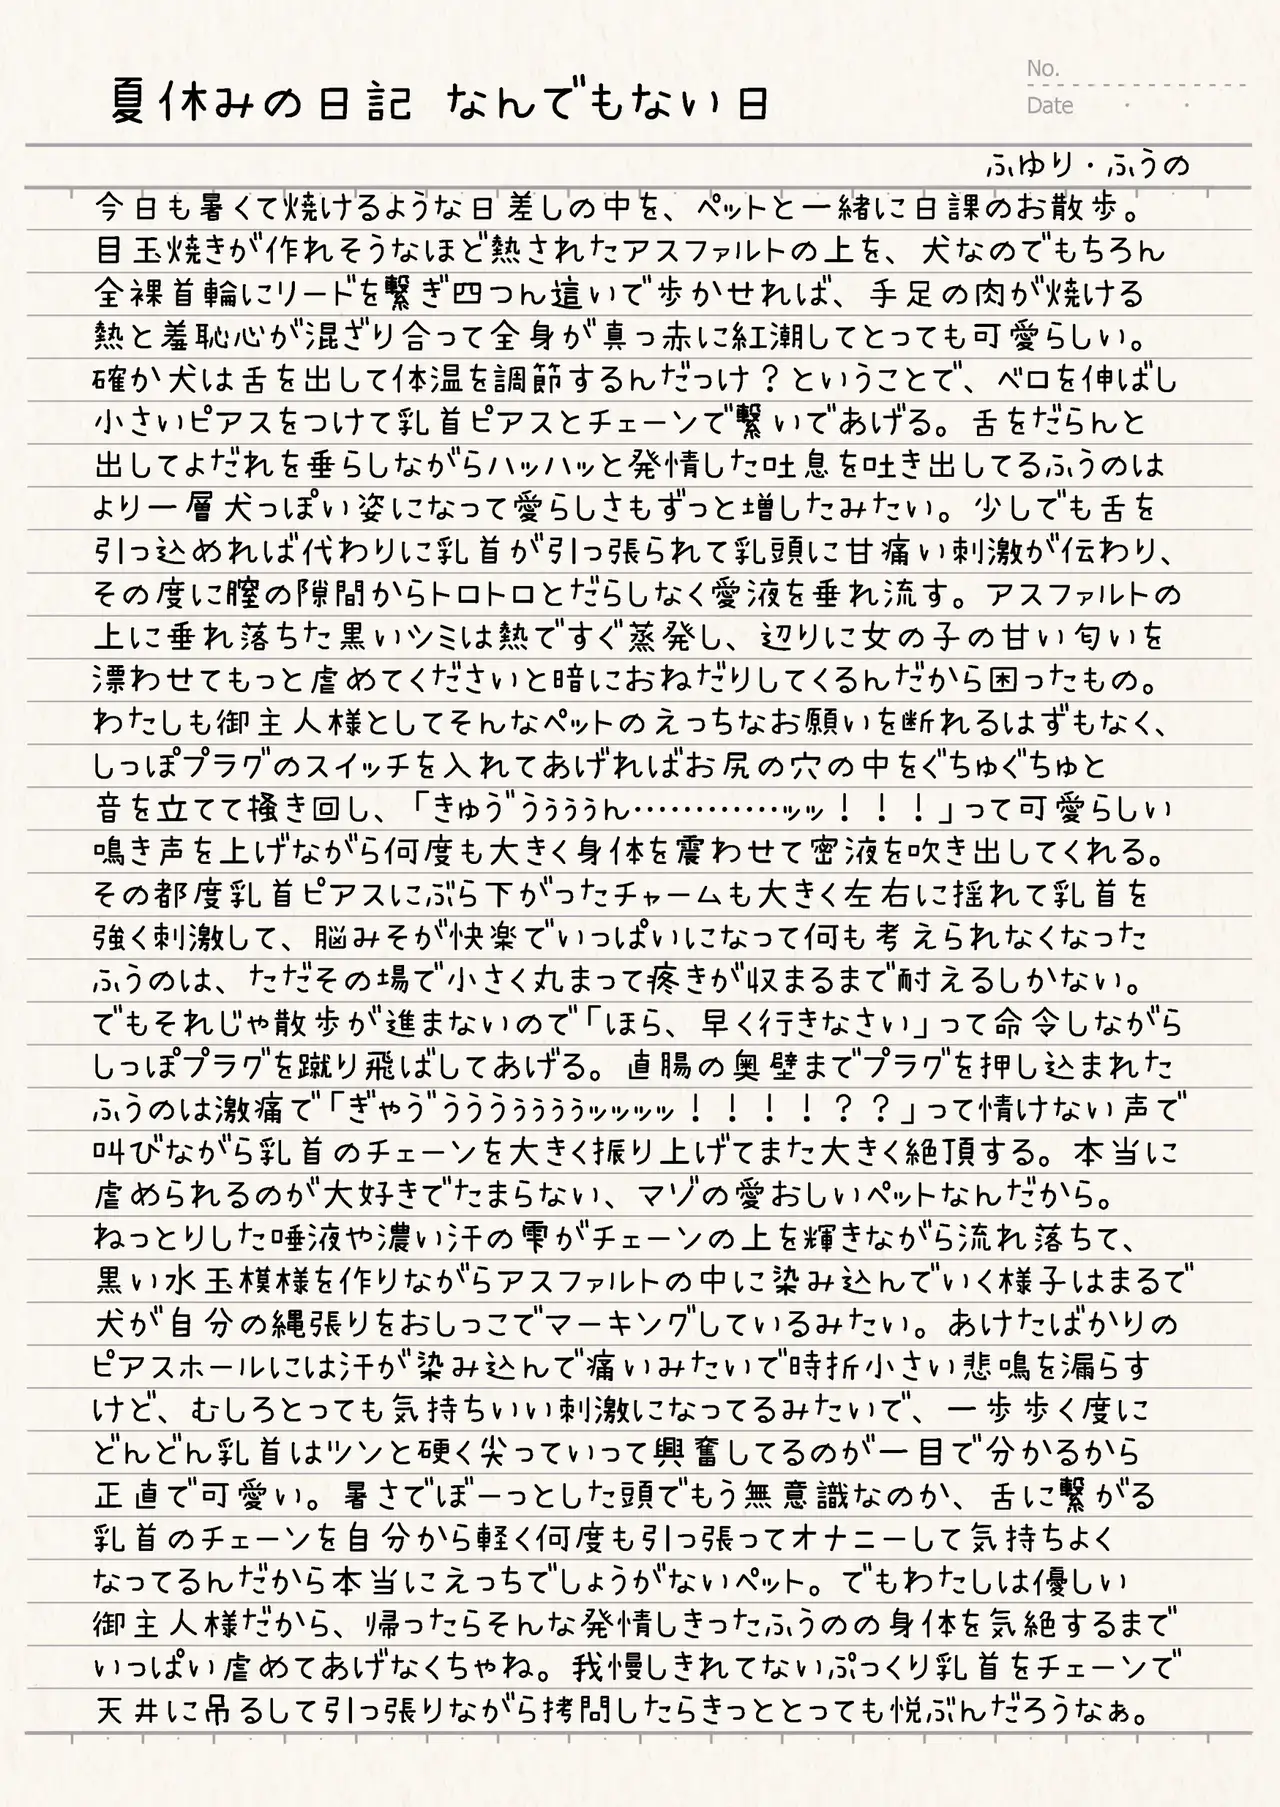 夏休みの日記 なんでもない日
No.
Date
ふゆり・ふうの
今日も暑くて焼けるような日差しの中を、ペットと一緒に日課のお散歩。
目玉焼きが作れそうなほど熱されたアスファルトの上を、犬なのでもちろん
全裸首輪にリードを繋ぎ四つん這いで歩かせれば、手足の肉が焼ける
熱と羞恥心が混ざり合って全身が真っ赤に紅潮してとっても可愛らしい。
確か犬は舌を出して体温を調節するんだっけ？ということで、ベロを伸ばし
小さいピアスをつけて乳首ピアスとチェーンで繋いであげる。舌をだらんと
出してよだれを垂らしながらハッハッと発情した吐息を吐き出してるふうのは
より一層犬っぽい姿になって愛らしさもずっと増したみたい。少しでも舌を
引っ込めれば代わりに乳首が引っ張られて乳頭に甘痛い刺激が伝わり、
その度に膣の隙間からトロトロとだらしなく愛液を垂れ流す。アスファルトの
上に垂れ落ちた黒いシミは熱ですぐ蒸発し、辺りに女の子の甘い匂いを
漂わせてもっと虐めてくださいと暗におねだりしてくるんだから困ったもの。
わたしも御主人様としてそんなペットのえっちなお願いを断れるはずもなく、
しっぽプラグのスイッチを入れてあげればお尻の穴の中をぐちゅぐちゅと
音を立てて掻き回し、「きゅう゛うぅぅぅん…………ｯｯ！！！」って可愛らしい
鳴き声を上げながら何度も大きく身体を震わせて密液を吹き出してくれる。
その都度乳首ピアスにぶら下がったチャームも大きく左右に揺れて乳首を
強く刺激して、脳みそが快楽でいっぱいになって何も考えられなくなった
ふうのは、ただその場で小さく丸まって疼きが収まるまで耐えるしかない。
でもそれじゃ散歩が進まないので「ほら、早く行きなさい」って命令しながら
しっぽプラグを蹴り飛ばしてあげる。直腸の奥壁までプラグを押し込まれた
ふうのは激痛で「ぎゃう゛うううぅぅぅぅｯｯｯｯ！！！！？？」って情けない声で
叫びながら乳首のチェーンを大きく振り上げてまた大きく絶頂する。本当に
虐められるのが大好きでたまらない、マゾの愛おしいペットなんだから。
ねっとりした唾液や濃い汗の雫がチェーンの上を輝きながら流れ落ちて、
黒い水玉模様を作りながらアスファルトの中に染み込んでいく様子はまるで
犬が自分の縄張りをおしっこでマーキングしているみたい。あけたばかりの
ピアスホールには汗が染み込んで痛いみたいで時折小さい悲鳴を漏らす
けど、むしろとっても気持ちいい刺激になってるみたいで、一歩歩く度に
どんどん乳首はツンと硬く尖っていって興奮してるのが一目で分かるから
正直で可愛い。暑さでぼーっとした頭でもう無意識なのか、舌に繋がる
乳首のチェーンを自分から軽く何度も引っ張ってオナニーして気持ちよく
なってるんだから本当にえっちでしょうがないペット。でもわたしは優しい
御主人様だから、帰ったらそんな発情しきったふうのの身体を気絶するまで
いっぱい虐めてあげなくちゃね。我慢しきれてないぷっくり乳首をチェーンで
天井に吊るして引っ張りながら拷問したらきっととっても悦ぶんだろうなぁ。